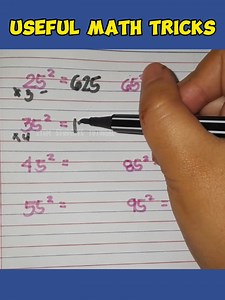 USEFUL MATH TRICKS
25² = 625 65²
x 3
35² = 1
x 4
45² = 85² =
55² = 95² =